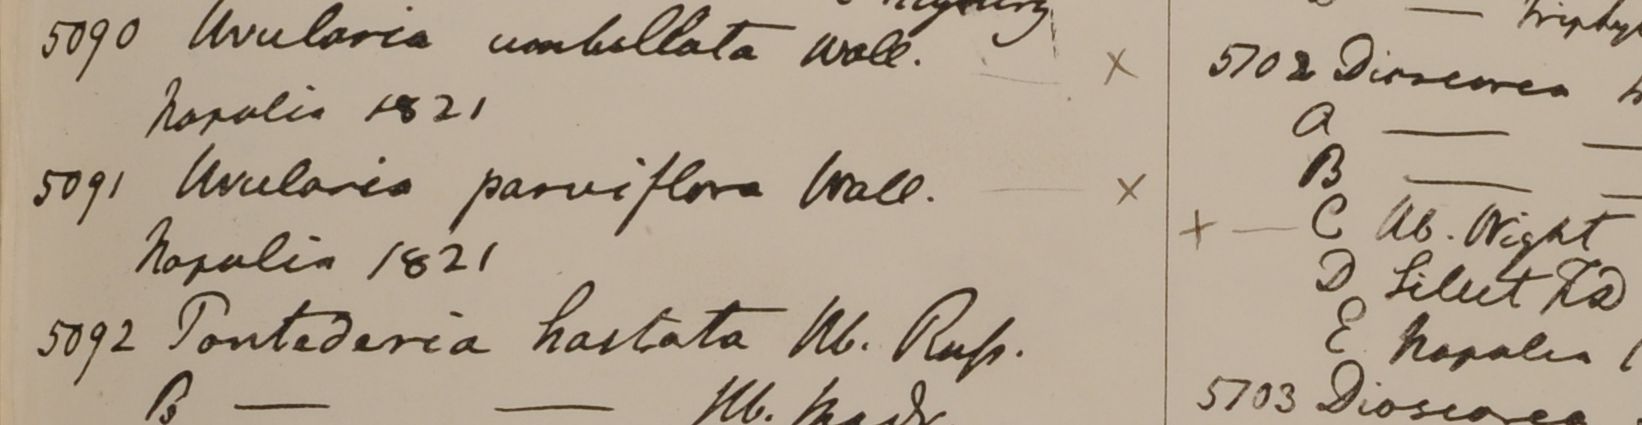 5090 Uvularia umbellata Wall.
Napalia 1821
5091 Uvularia parviflora Wall.
Napalia 1821
5092 Pontederia hastata Hb. Russ.
B — — Hb. Madr.
5702 Dioscorea
A — —
B — —
+ — C Hb. Wight
D Silhet FD
E Napalia
5703 Dioscorea